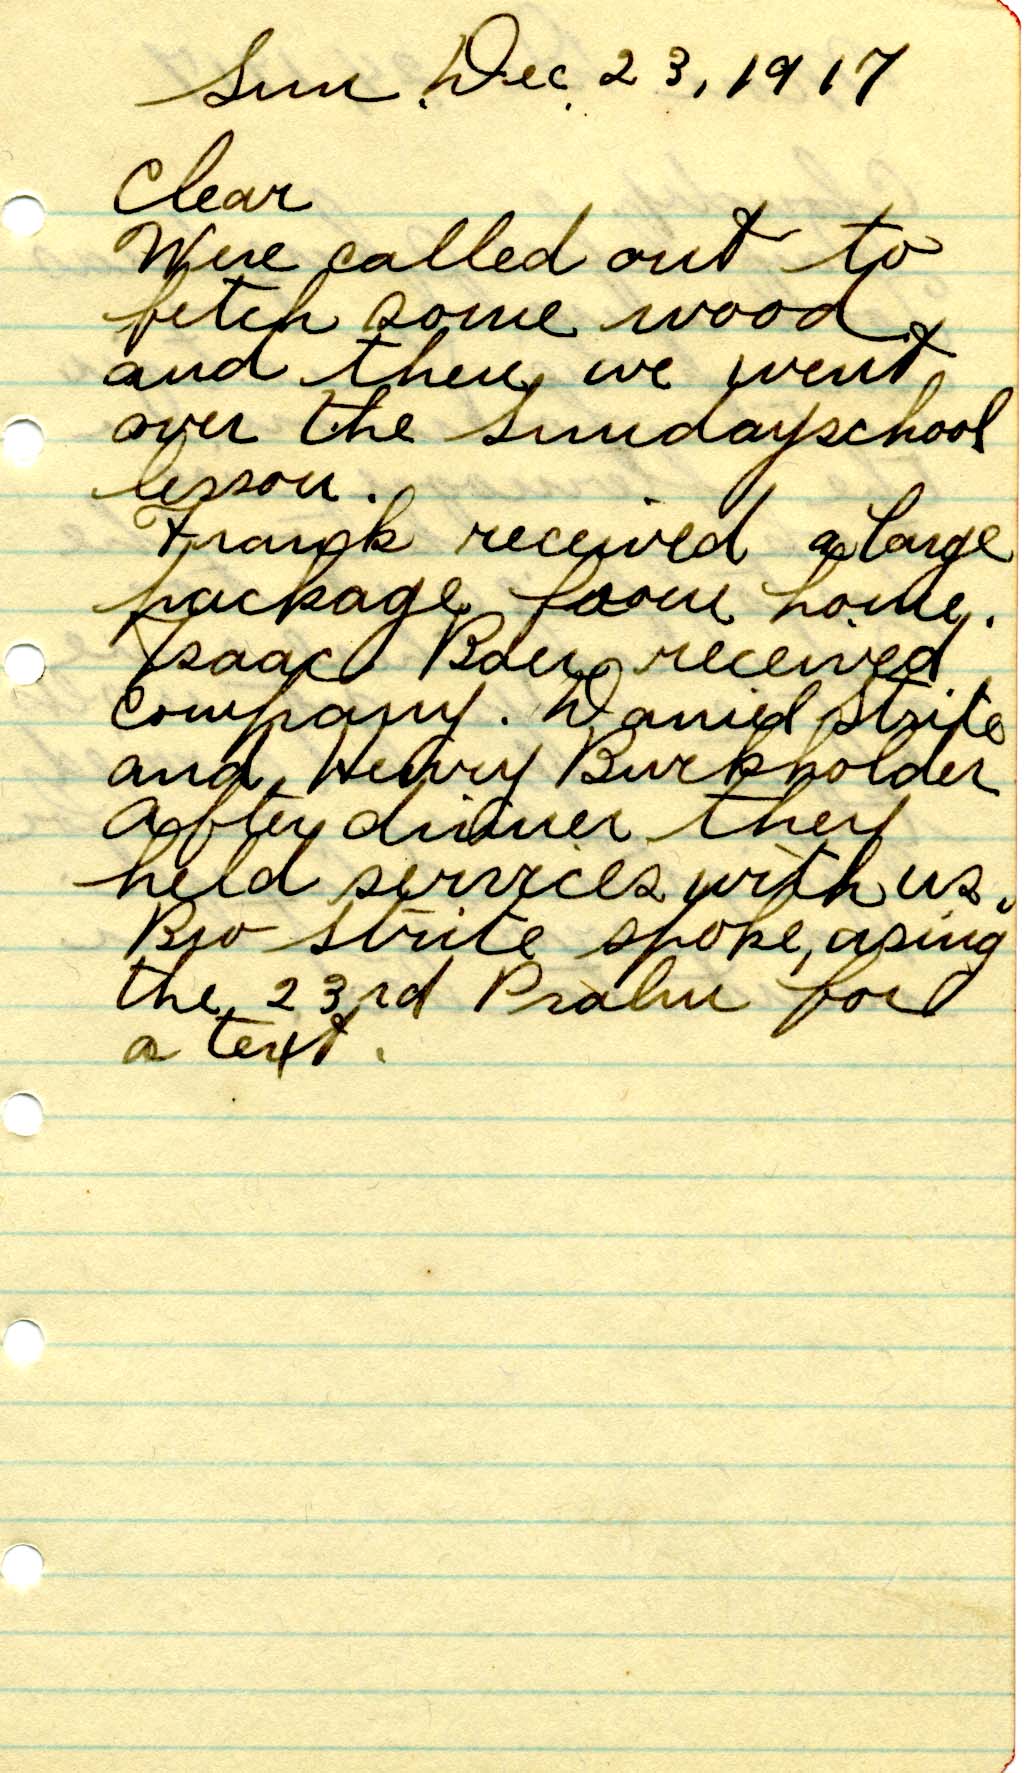 Sun. Dec. 23, 1917
Clear
Were called out to
fetch some wood
and then we went
over the Sundayschool
lesson.
Frank received a large
package from home.
Isaac Baer received
company. Daniel Strite
and Henry Burkholder
After dinner they
held services with us.
Bro Strite spoke, using
the 23rd Psalm for
a text.